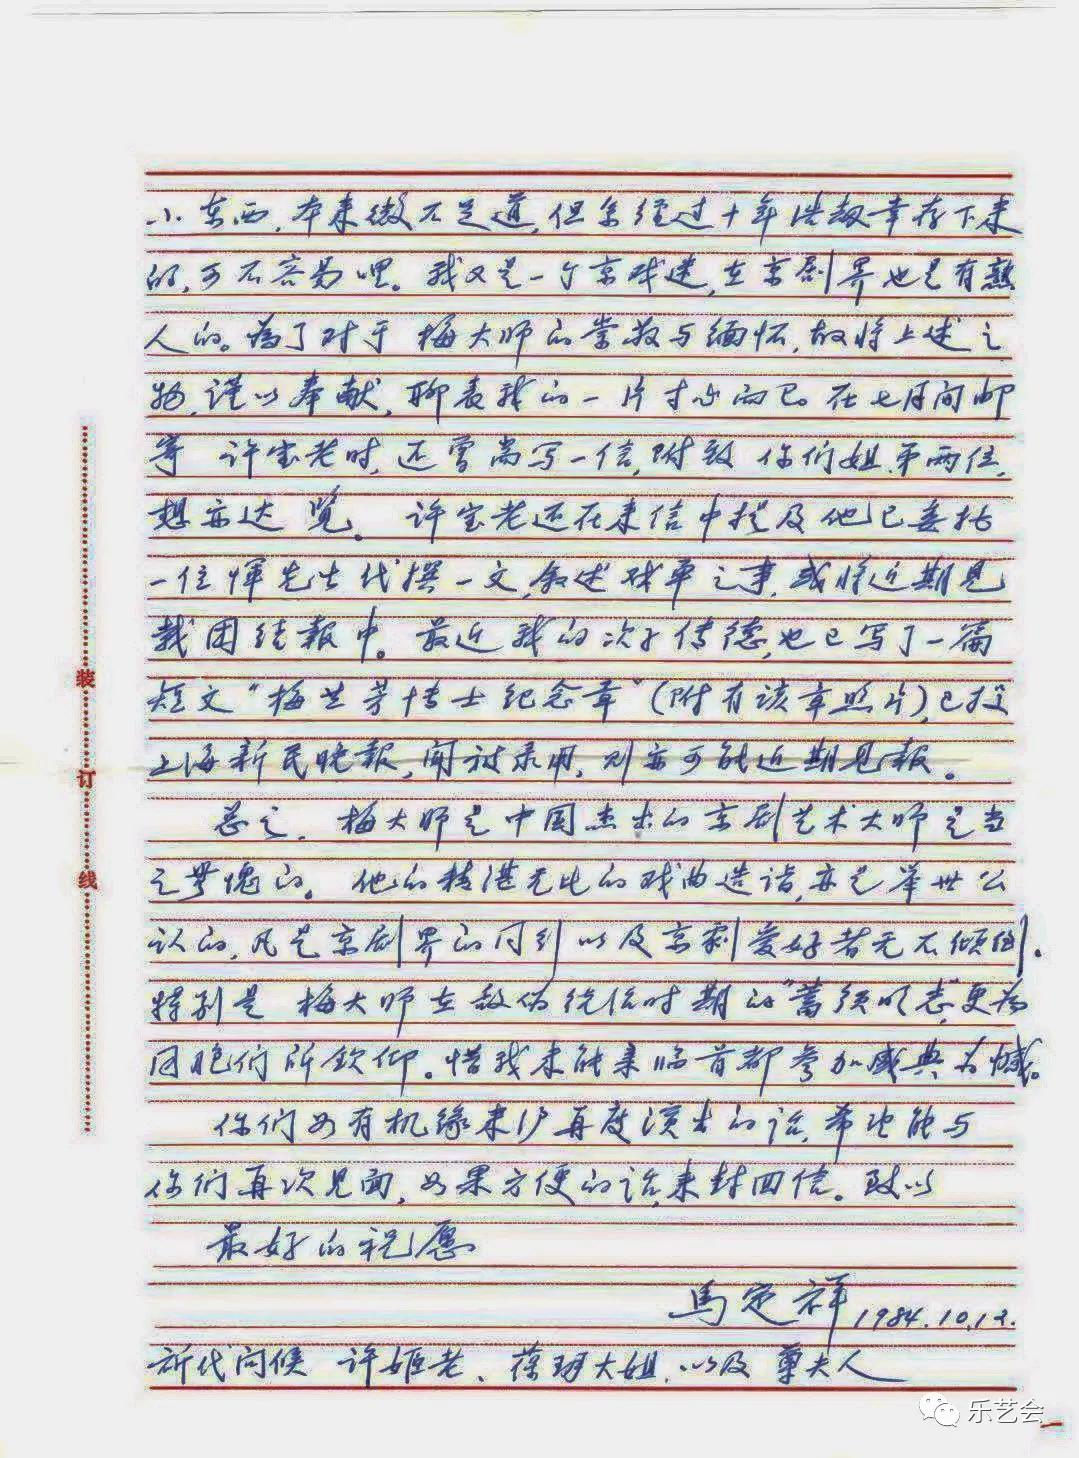 小东西，本来微不足道，但系经过十年浩劫幸存下来
的，可不容易哩。我又是一个京戏迷，在京剧界也是有熟
人的。为了对于 梅大师的崇敬与缅怀，故将上述之
物，谨以奉献，聊表我的一片寸心而已。在七月间邮
寄 许宝老时，还曾尚写一信，附致 你们姐、弟两位，
想亦达 览。 许宝老还在来信中提及他已委托
一位恽先生代撰一文，叙述 之事，或将近期见
载团结報中。最近我的次子传德，也已写了一篇
短文“梅兰芳博士纪念章”（附有该章照片），已投
上海新民晚報，闻被录用，则亦可能近期見報。
总之，梅大师是中国杰出的京剧艺术大师是当
之無愧的。他的精湛无比的戏曲造诣，亦是举世公
认的，凡是京剧界的同行以及京剧爱好者无不倾倒。
特别是 梅大师在敌伪统治时期的“蓄须明志”更为
同胞们所钦仰。惜我未能来临首都参加盛典为憾。
你们如有机缘来沪再度演出的话，希望能与
你们再次见面，如果方便的话，来封回信。致以
最好的祝愿
馬定祥 1984.10.12.
祈代问候 许姬老、葆玥大姐，以及 尊夫人
装
订
线
乐艺会